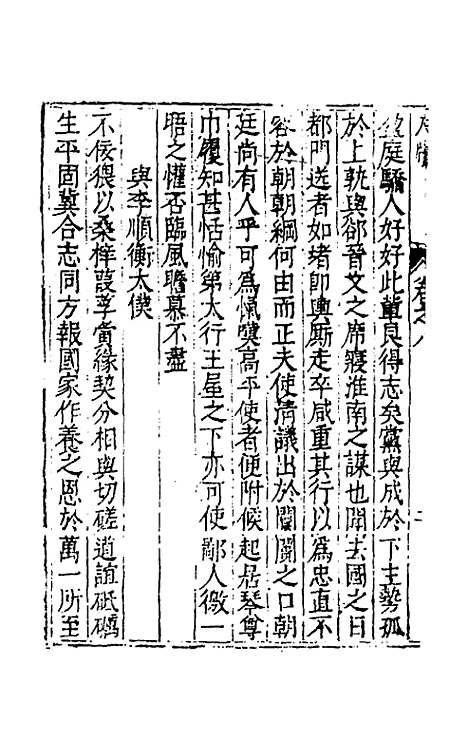 盈庭驕人好好此輩良得志矣黨與成於下主勢孤
於上孰與郤晉文之席寢淮南之謀也聞去國之日
都門送者如堵即輿厮走卒咸重其行以為忠直不
容於朝朝綱何由而正夫使清議出於閭閻之口朝
廷尚有人乎可為愾嘆高平使者便附候起居琴尊
巾履知甚恬愉第太行王屋之下亦可使鄙人徼一
晤之懽否臨風瞻慕不盡
與李順衡太僕
不佞猥以桑梓葭莩夤緣契分相與切磋道誼砥礪
生平固冀合志同方報國家作養之恩於萬一所至